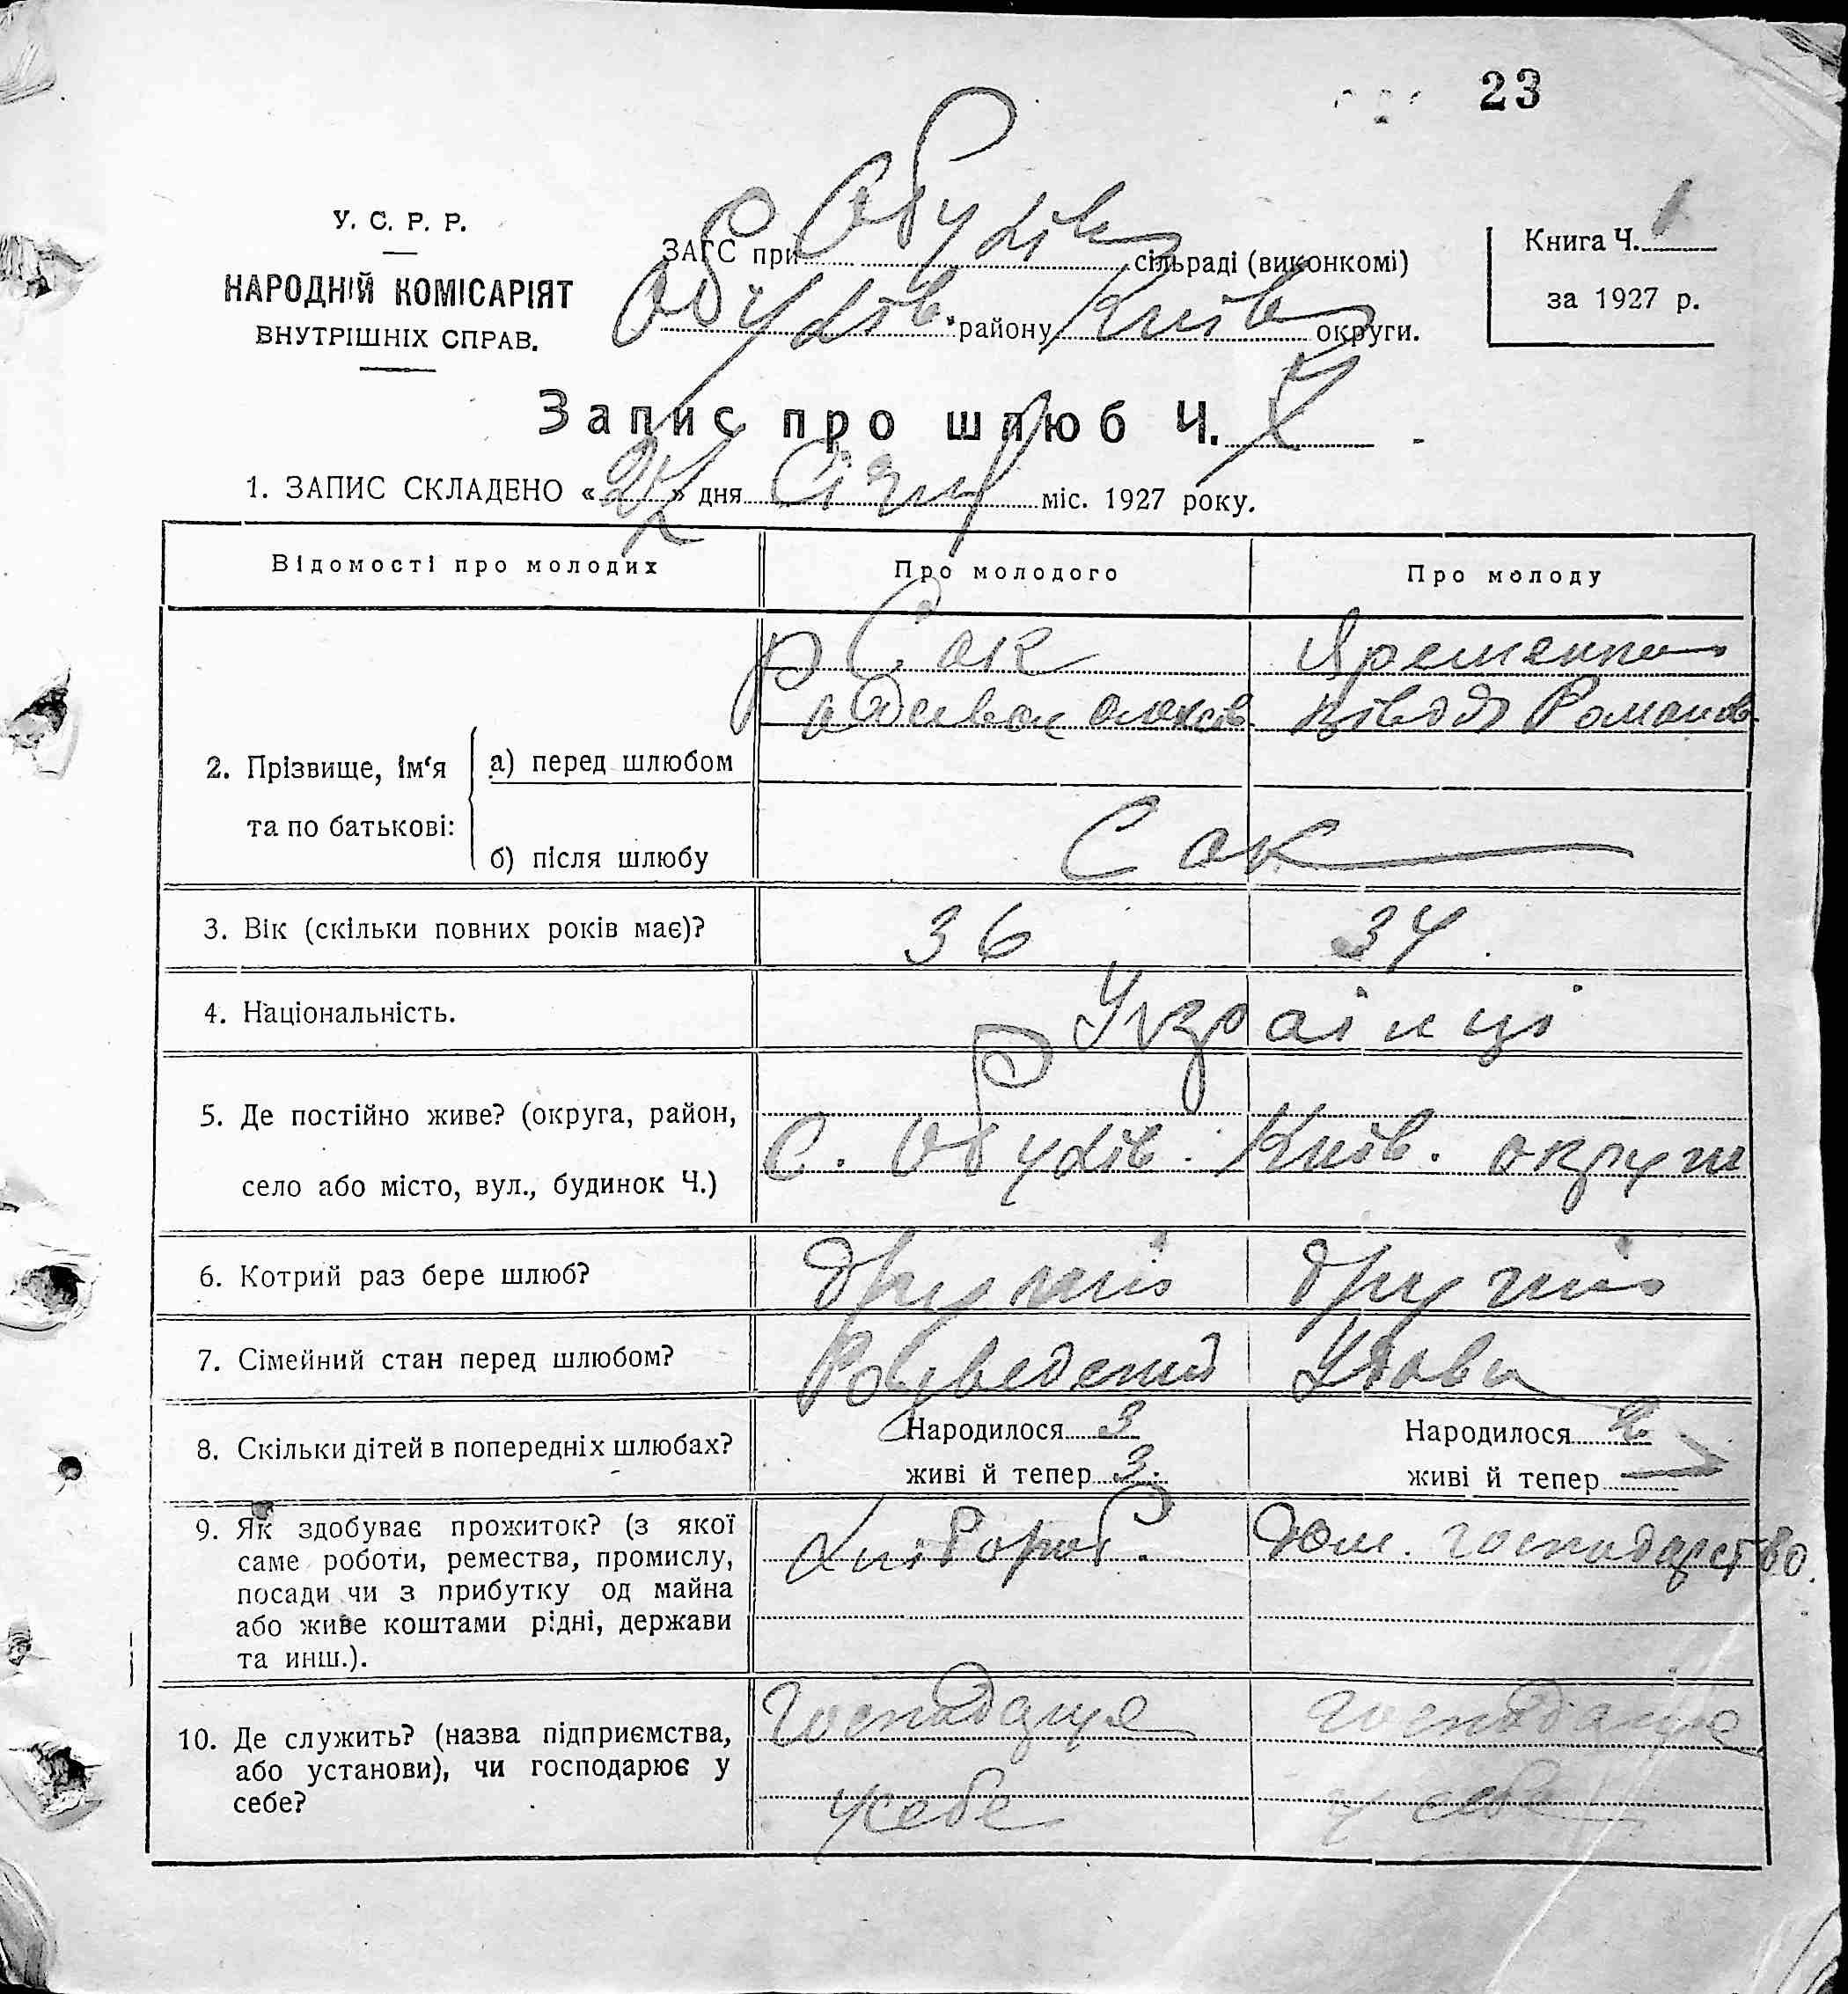 23
У. С. Р. Р.
НАРОДНІЙ КОМІСАРІЯТ
ВНУТРІШНІХ СПРАВ.
ЗАГС при Обухів сільраді (виконкомі)
Обухів. району Київ округи.
Книга Ч. 1
за 1927 р.
Запис про шлюб Ч.
1. ЗАПИС СКЛАДЕНО « » дня Січня міс. 1927 року.
Відомості про молодих Про молодого Про молоду
2. Прізвище, ім‘я та по батькові:
а) перед шлюбом
Сак Яременко
Романов
б) після шлюбу
Сак
3. Вік (скільки повних років має)? 36 34
4. Національність. Українці
5. Де постійно живе? (округа, район,
село або місто, вул., будинок Ч.)
С. Обухів. Київ. округи
6. Котрий раз бере шлюб? другий другий
7. Сімейний стан перед шлюбом? Розведений Удова
8. Скільки дітей в попередніх шлюбах? Народилося 3 Народилося
живі й тепер 3. живі й тепер —
9. Як здобуває прожиток? (з якої
саме роботи, ремества, промислу,
посади чи з прибутку од майна
або живе коштами рідні, держави
та инш.).
Хлібороб. Дом. господарство.
10. Де служить? (назва підприємства,
або установи), чи господарює у
себе?
Господарує Господарує
у себе у себе